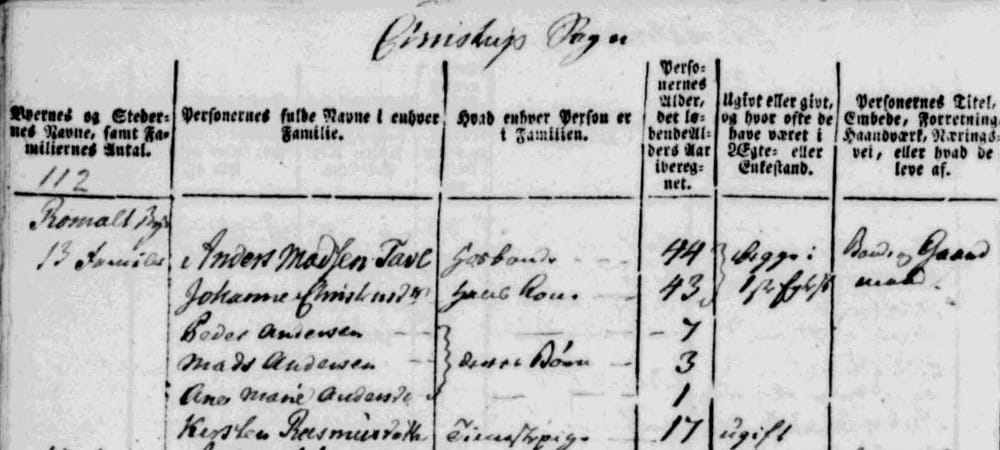 Sogn
Byernes og Steder-
nes Navne, samt Fa-
miliernes Antal.
Personernes fulde Navne i enhver
Familie.
Hvad enhver Person er
i Familien.
Perso-
nernes
Alder,
det lø-
bende Al-
ders Aar
ibereg-
net.
Ugivt eller givt,
og hvor ofte de
have været i
Ægte- eller
Enkestand.
Personernes Titel,
Embede, Forretning,
Haandværk, Nærings-
vei, eller hvad de
leve af.
112
Romalt Bye
13 Familier Anders Madsen Tave Hosbonde 44 Begge i Bonde og Gaard
Johanne hans Kone 43 1ste mand
Peder Andersen 7
Mads Andersen deres Børn 3
Ane Marie Andersd 1
Kirsten Rasmusdatter Tienestepige 17 ugift